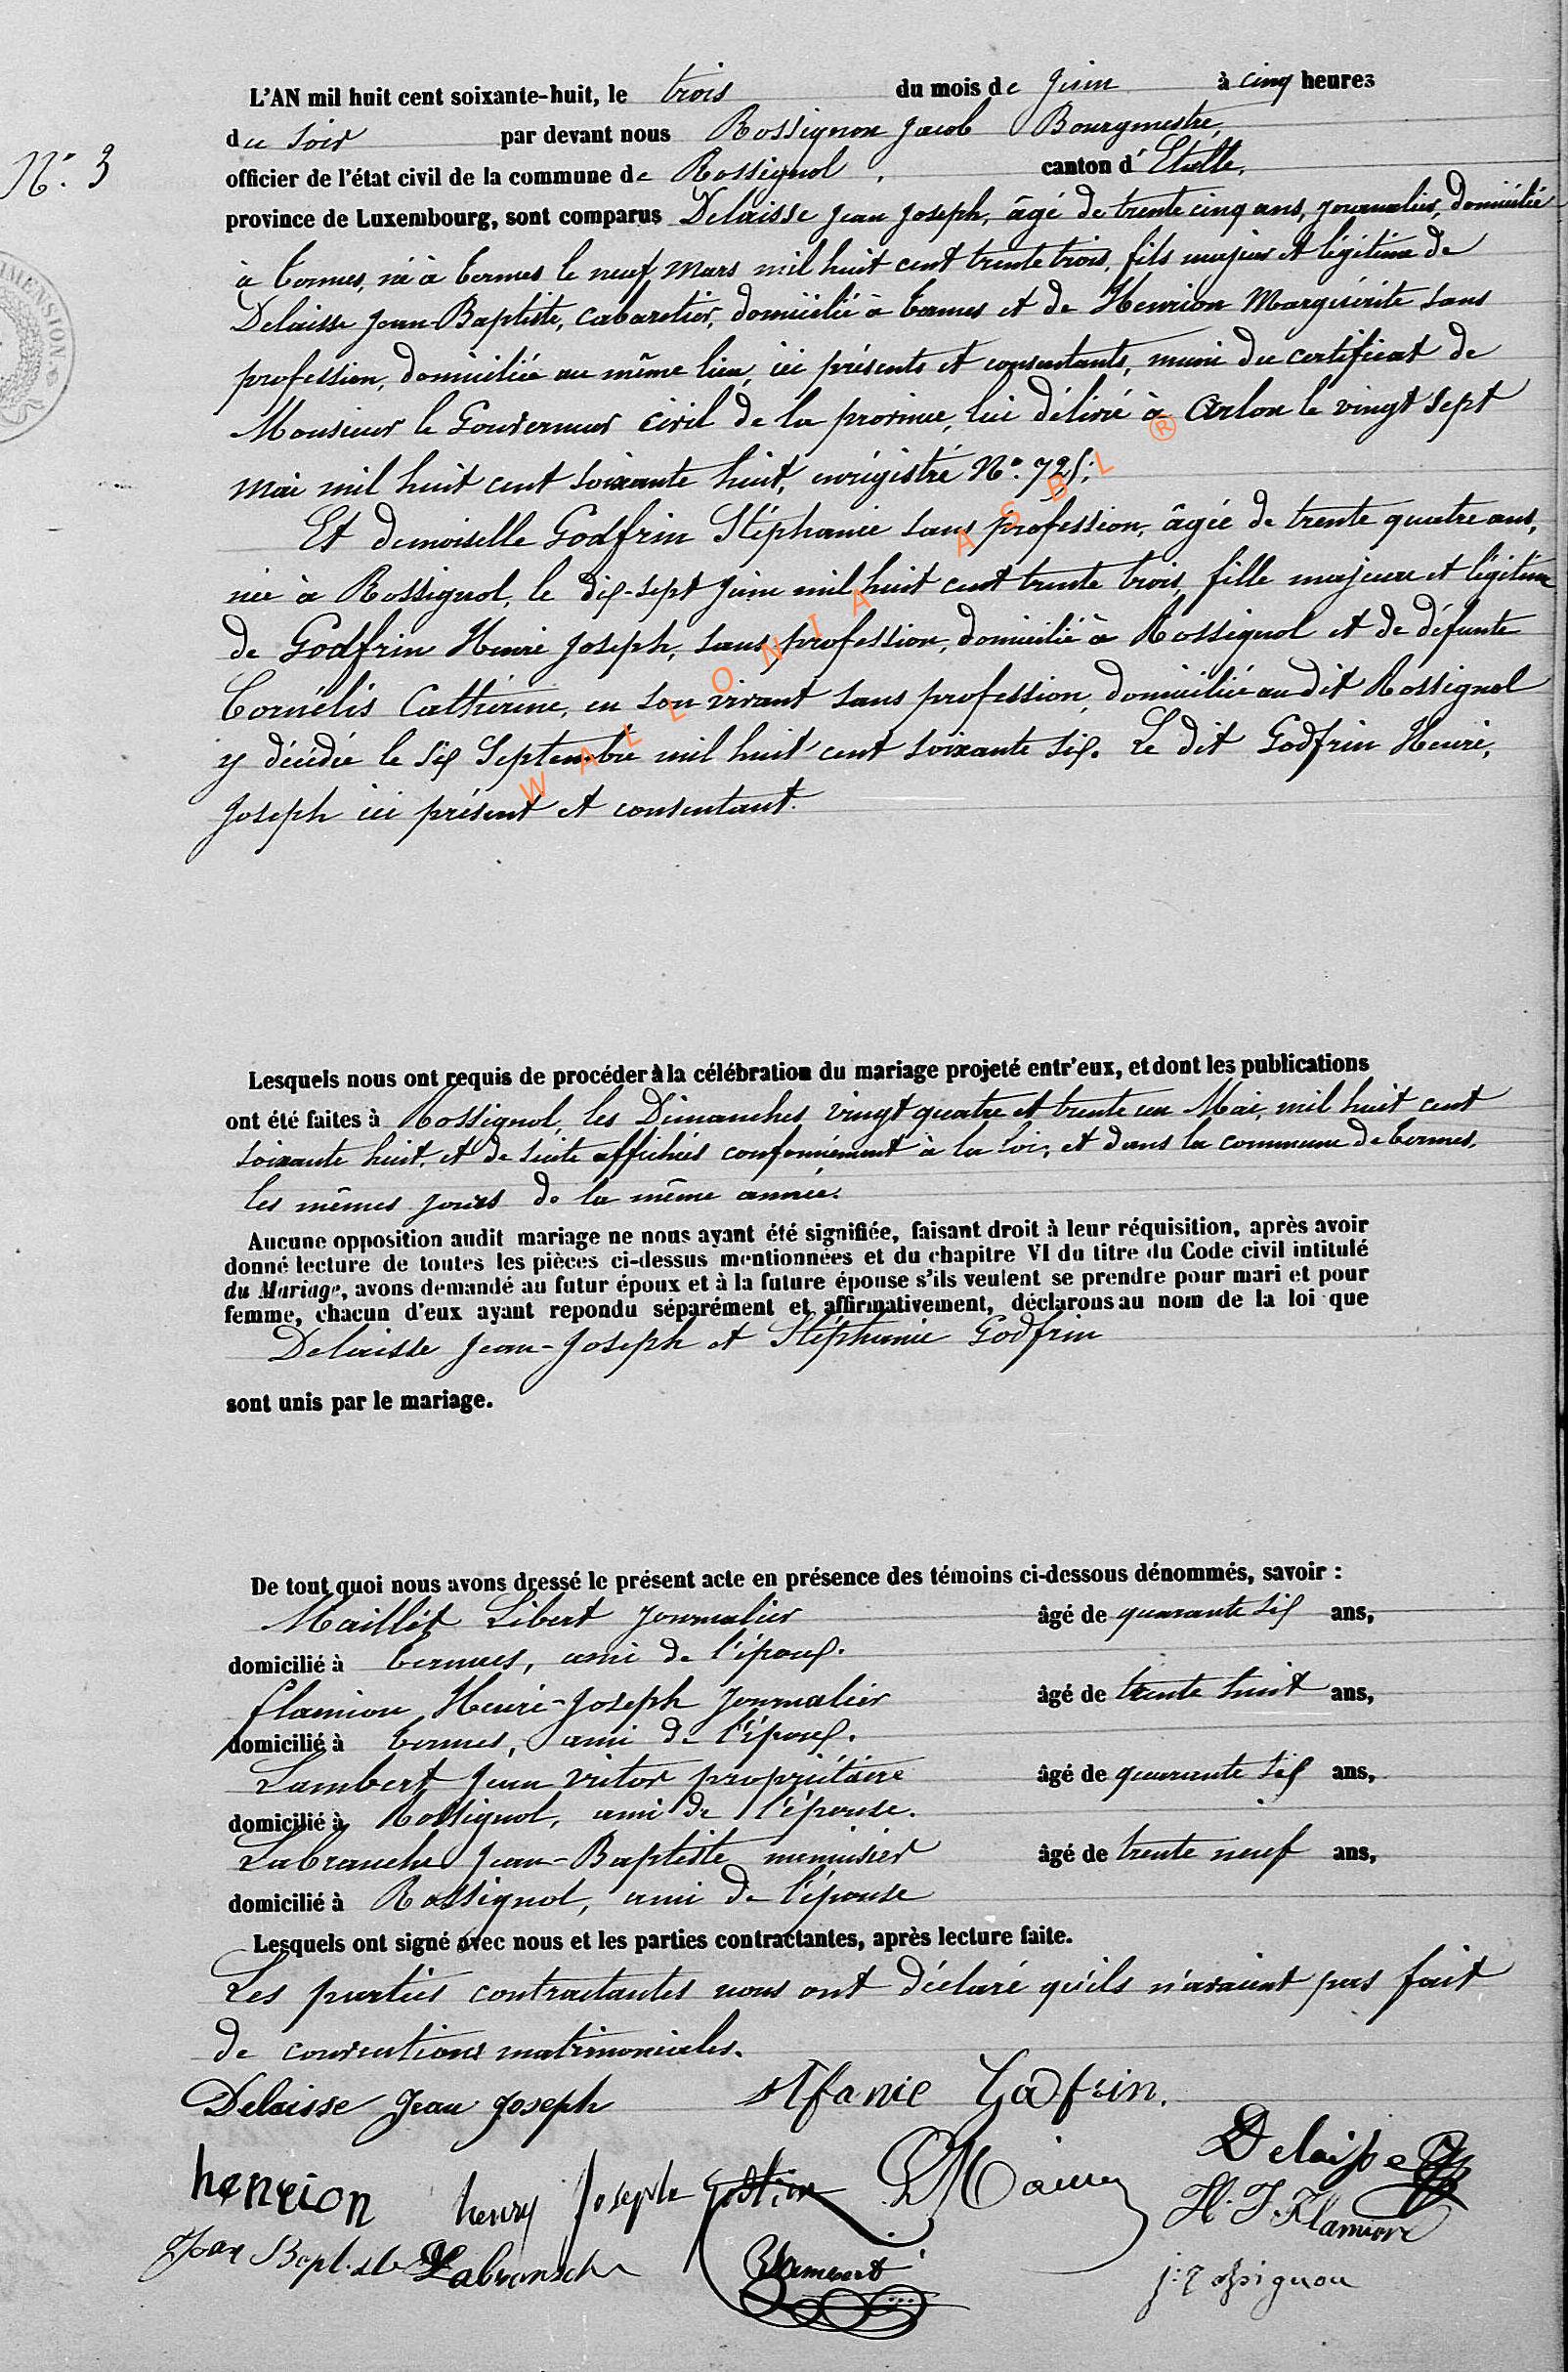 L'AN mil huit cent soixante-huit, le trois du mois de Juin à cinq heures
du soir par devant nous Rossignon Jacob Bourgmestre,
N° 3
officier de l'état civil de la commune de Rossignol, canton d'Etalle,
province de Luxembourg, sont comparus Delaisse Jean Joseph, âgé de trente cinq ans, journalier, domicilié
à Termes, né à Termes le neuf Mars mil huit cent trente trois, fils majeur et légitime de
Delaisse Jean-Baptiste, cabaretier, domicilié à Termes et de Henrion Marguérite sans
profession, domiciliée au même lieu, ici présents et consentants, muni du certificat de
Monsieur le Gouverneur civil de la province, lui délivré à Arlon le vingt sept
mai mil huit cent soixante huit, enrégistré N°. 725;
Et demoiselle Godfrin Stéphanie sans profession, âgée de trente quatre ans,
née à Rossignol, le dix-sept Juin mil huit cent trente trois, fille majeure et légitime
de Godfrin Henri Joseph, sans profession, domicilié à Rossignol et de défunte
Cornélis Cathérine, en son vivant sans profession, domiciliée au dit Rossignol
y décédée le six Septembre mil huit cent soixante six. Le dit Godfrin Henri,
Joseph ici présent et consentant.
WALLONIA ASBL ®
Lesquels nous ont requis de procéder à la célébration du mariage projeté entr'eux, et dont les publications
ont été faites à Rossignol, les Dimanches vingt quatre et trente un Mai, mil huit cent
soixante huit, et de suite affichées conformément à la loi, et dans la commune de Termes,
les mêmes jours de la même année.
Aucune opposition audit mariage ne nous ayant été signifiée, faisant droit à leur réquisition, après avoir
donné lecture de toutes les pièces ci-dessus mentionnées et du chapitre VI du titre du Code civil intitulé
du Mariage, avons demandé au futur époux et à la future épouse s'ils veulent se prendre pour mari et pour
femme, chacun d'eux ayant repondu séparément et affirmativement, déclarons au nom de la loi que
Delaisse Jean-Joseph et Stéphanie Godfrin
sont unis par le mariage.
De tout quoi nous avons dressé le présent acte en présence des témoins ci-dessous dénommés, savoir :
Maillet Libert Journalier âgé de quarante six ans,
domicilié à Termes, ami de l'époux.
Flamion Henri-Joseph Journalier âgé de trente huit ans,
domicilié à Termes, ami de l'époux.
Lambert Jean Victor propriétaire âgé de quarante six ans,
domicilié à Rossignol, ami de l'épouse.
Labranche Jean-Baptiste menuisier âgé de trente neuf ans,
domicilié à Rossignol, ami de l'épouse
Lesquels ont signé avec nous et les parties contractantes, après lecture faite.
Les parties contractantes nous ont déclaré qu'ils n'avaient pas fait
de conventions matrimoniales.
Delaisse Jean Joseph Stfanie Godfrin.
Delaisse
henrion henry Joseph
H. J. Flamion
Jean Baptiste Labransche
j: rossignon